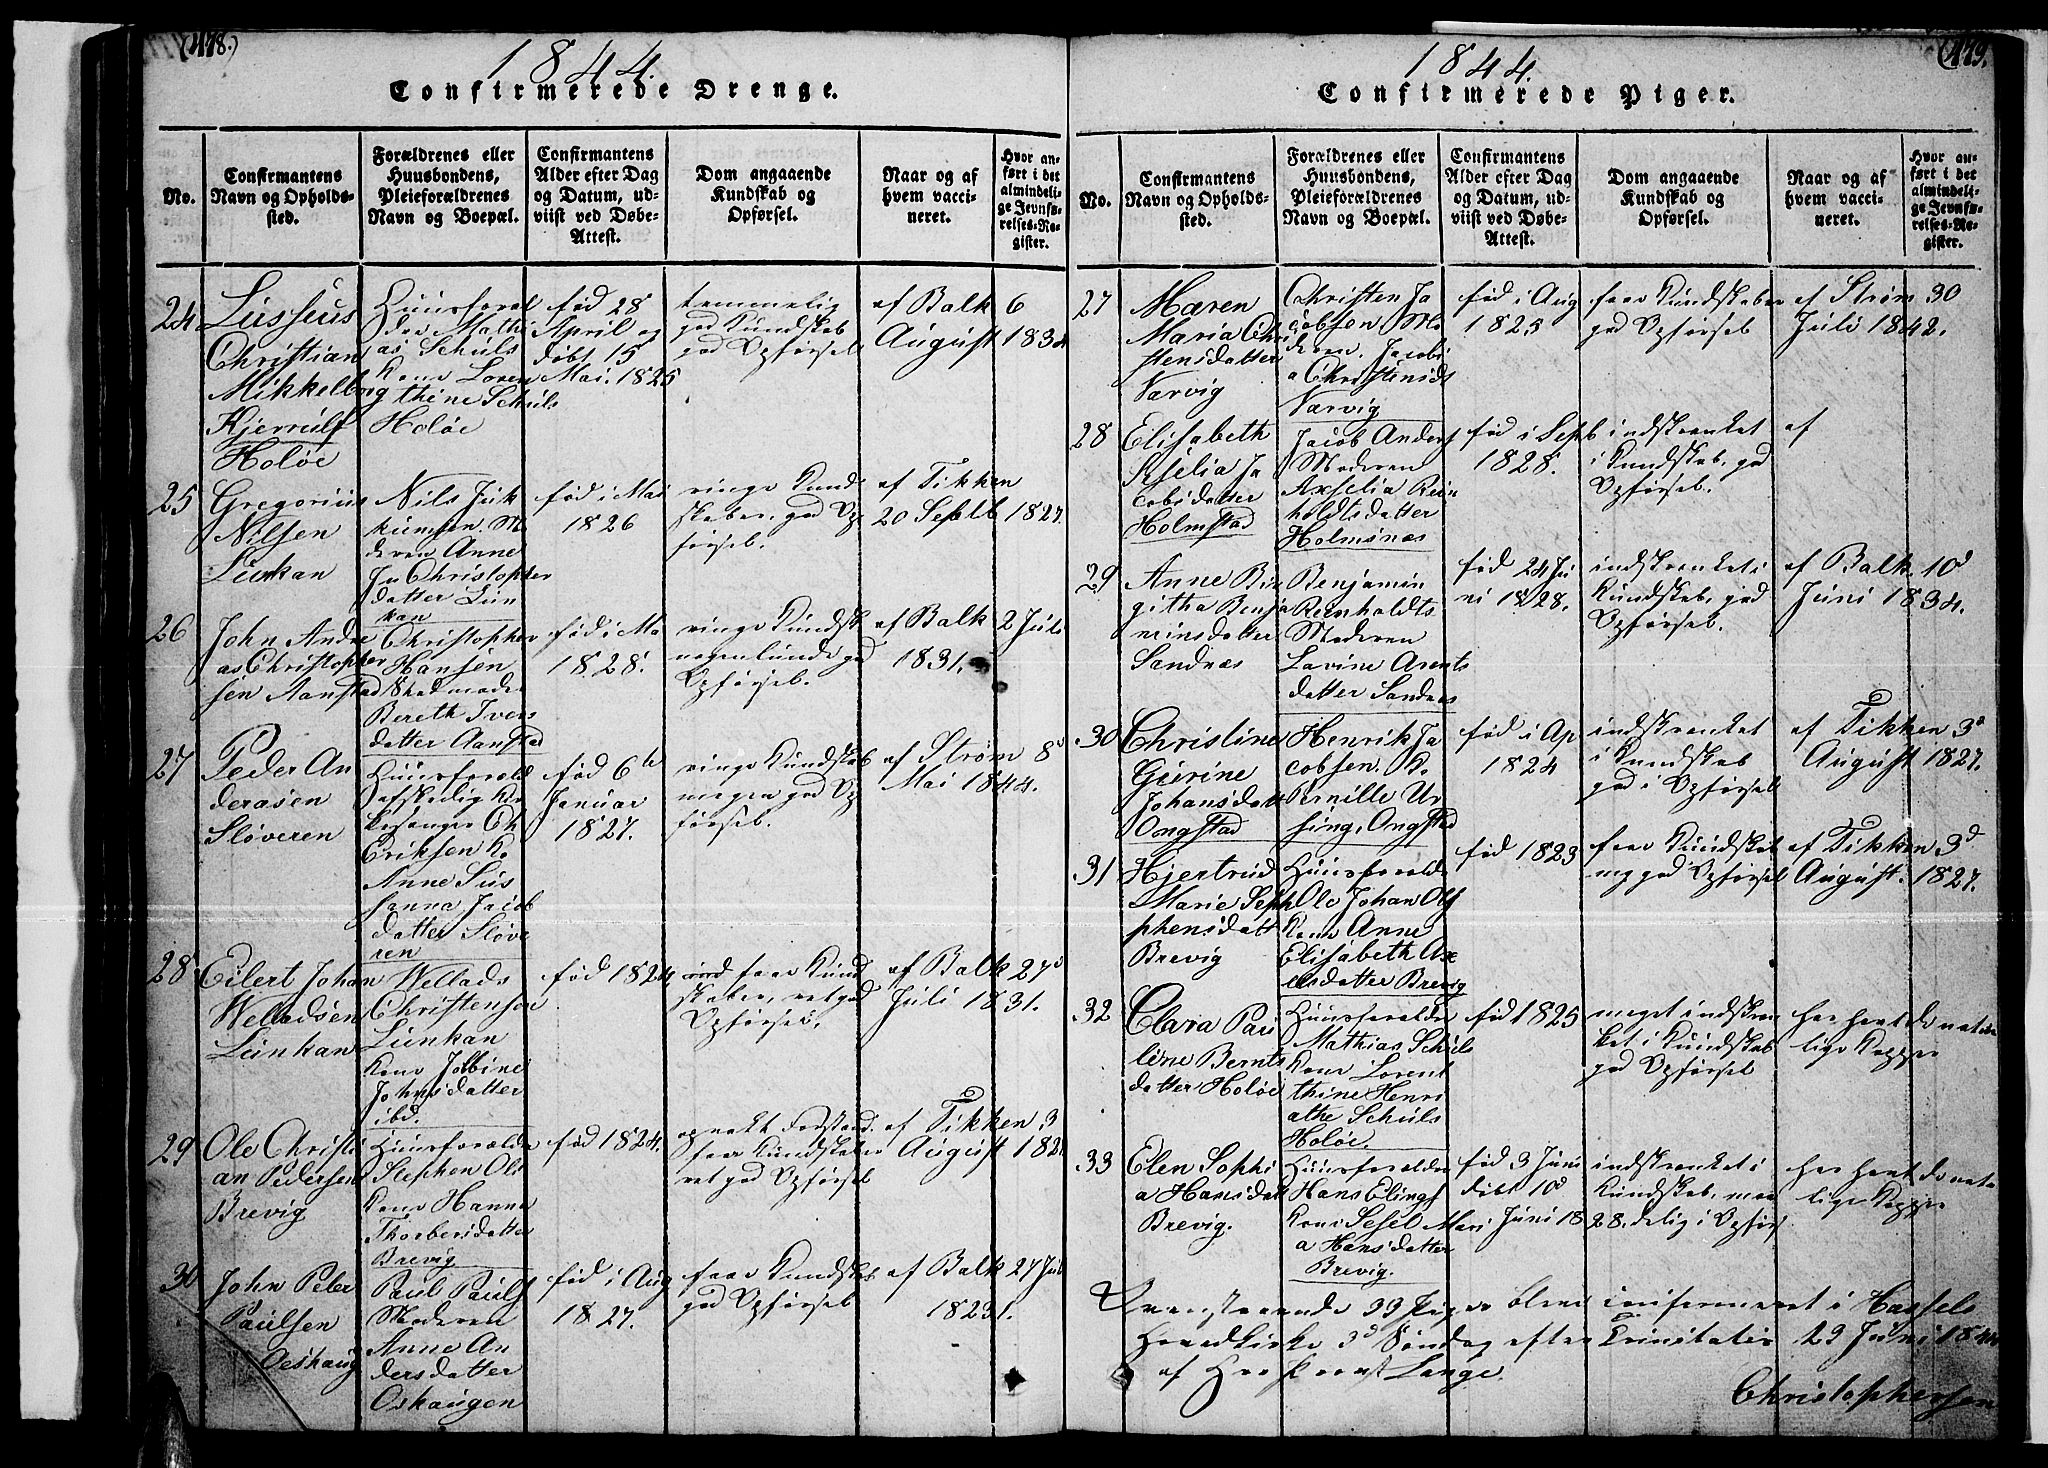 (418.)
1844.
Confirmerede Drenge.
No.
Confirmantens
Navn og Opholds-
sted.
Forældrenes eller
Huusbondens,
Pleieforældrenes
Navn og Boepæl.
Confirmantens
Alder efter Dag
og Datum, ud-
viist ved Døbe-
Attest.
Dom angaaende
Kundskab og
Opførsel.
Naar og af
hvem vacci-
neret.
Hvor an-
ført i det
almindeli-
ge Jevnfø-
relses-Re-
gister.
24
Christian
Mikkelborg
Kjerrulf
Holøe
Huusforæl
dre Mathi
as Schüls
Kone Loren
thine Schüls
Holøe
fød 28
April og
døbt 15
Mai. 1825
temmelig
god Kundskab
god Opførsel
af Balk 6
August 1834
25
Gregorius
Nilsen
Lünkan
Nils Jük
kümsen. Mo
deren Anne
Ju Christopher
datter Lün
kan
fød i Mai
1826
ringe Kund
skaber, god Op
førsel.
af Tikken
20 Septb 1827.
26
John Andre
as Christopher
sen Aanstad
Christopher
Hansen
Stedmoder
Bereth Ivers
datter Aanstad
fød i Ma
1828.
ringe Kundsk
nogenlunde god
Opførsel.
af Balk 2 Juli
1831.
27
Peder An
derasen
Sløveren
Huusforæld
afskedig Kir
kesanger Ch
Eriksen K.
Anne Sus
sanna Jacob
datter Sløve
ren
fød 6te
Januar
1827.
ringe Kundskab
megen god Op
førsel.
af Strøm 8d
Mai 1844.
28
Eilert Johan
Welladsen
Lünkan
Wellads
Christensen
Lünkan
Kone Jobine
Johnsdatter
ibd.
fød 1824,
faae Kund
skaber, ret god
Opførsel.
af Balk 27d
Juli 1831.
29
Ole Christi
an Pedersen
Brevig
Huusforælde
Stephen Ols
Kone Hanna
Thorbersdatter
Brevig
fød 1824.
svakt Forstand.
faae Kundskaber
ret god Opførsel
af Tikken 3
August 182
30
John Peter
Paulsen
Oeshaug
Paul Pauls
Moderen
Anne An
dersdatter
Oshaugen
fød i Aug
1827.
faae Kundskab
god Opførsel
af Balk 27 Juli
18231.
(419.
1844.
Confirmerede Piger.
No.
Confirmantens
Navn og Opholds-
sted.
Forældrenes eller
Huusbondens,
Pleieforældrenes
Navn og Boepæl.
Confirmantens
Alder efter Dag
og Datum, ud-
viist ved Døbe-
Attest.
Dom angaaende
Kundskab og
Opførsel.
Naar og af
hvem vacci-
neret.
Hvor an-
ført i det
almindeli-
ge Jevnfø-
relses-Re-
gister.
27
Maren
Maria Chri
stensdatter
Varvig
Christen Ja
cobsen, Mo
deren. Jacobi
a Christensd
Varvig
fød i Aug
1825
faae Kundskaber
god Opførsel
af Strøm 30
Juli 1842.
28
Elisabeth
Ja
cobsdatter
Holmstad
Jacob Anders
Moderen
Axselia Rein
holdtsdatter
Holmsnæs
fød i Septb
1828.
indskrenket
i Kundskab, god
Opførsel.
af
29
Anne Bir
githa Benja
minsdatter
Sandnæs
Benjamin
Reinholdts
Moderen
Lavine Arents
datter Sandnæs
fød 24 Ju
ni 1828.
indskrenket i
Kundskab, god
Opførsel.
af Balk. 10d
Juni 1834.
30
Christine
Gürine
Johansdatt
Ongstad
Henrik Ja
cobsen. K.
Pernille Ur
sing, Ongstad
fød i Ap
1824
indskrenket
i Kundskab
god i Opførsel
af Tikken 3d
August 1827.
31
Hjertrud
Marie Seph
phensdatt
Brevig
Huusforælde
Ole Johan Ols
Kone Anne
Elisabeth Ax
elsdatter Brevig
fød 1823
faae Kundskab
og god Opførsel
af Tikken 3d
August. 1827.
32
Clara Pau
line Bernts
datter Holøe
Huusforælder
Mathias Schüls
Kone Lorent
thine Henri
athe Schüls
Holøe.
fød 1825
meget indskren
ket i Kundskab
god Opførsel
har havt de natur
lige Kopper
33
Elen Sophi
a Hansdatt
Brevig.
Huusforælder
Hans Elings
Kone Sesel Mari
a Hansdatter
Brevig.
fød 3 Juni
døbt 10d
Juni 1828.
indskrenket i
Kundskab, maa
delig i Opførs
har havt de natur
lige Kopper
Ovenstaaende 33 Piger bleve confirmeret i Hassels
Hovedkirke 3d Søndag efter Trinitatis 23 Juni 1844
af Hr. Provst Lange.
Christophersen